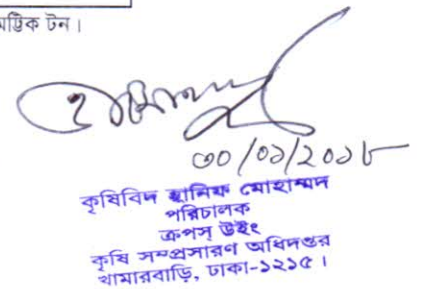 মেট্রিক টন।
৩০/০১/২০১৮
কৃষিবিদ হানিফ মোহাম্মদ
পরিচালক
ক্রপস্ উইং
কৃষি সম্প্রসারণ অধিদপ্তর
খামারবাড়ি, ঢাকা-১২১৫।